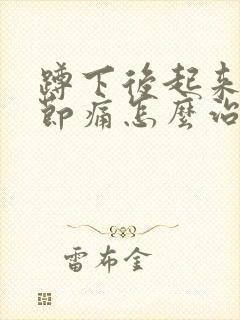 蹲下後起来
節痛怎麼治
雷布金